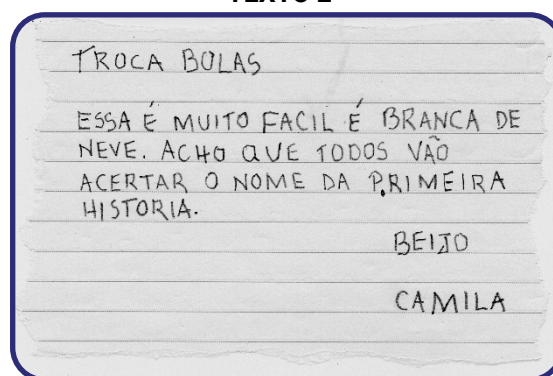 TROCA BOLAS
ESSA É MUITO FACIL É BRANCA DE
NEVE. ACHO QUE TODOS VÃO
ACERTAR O NOME DA PRIMEIRA
HISTORIA.
BEIJO
CAMILA